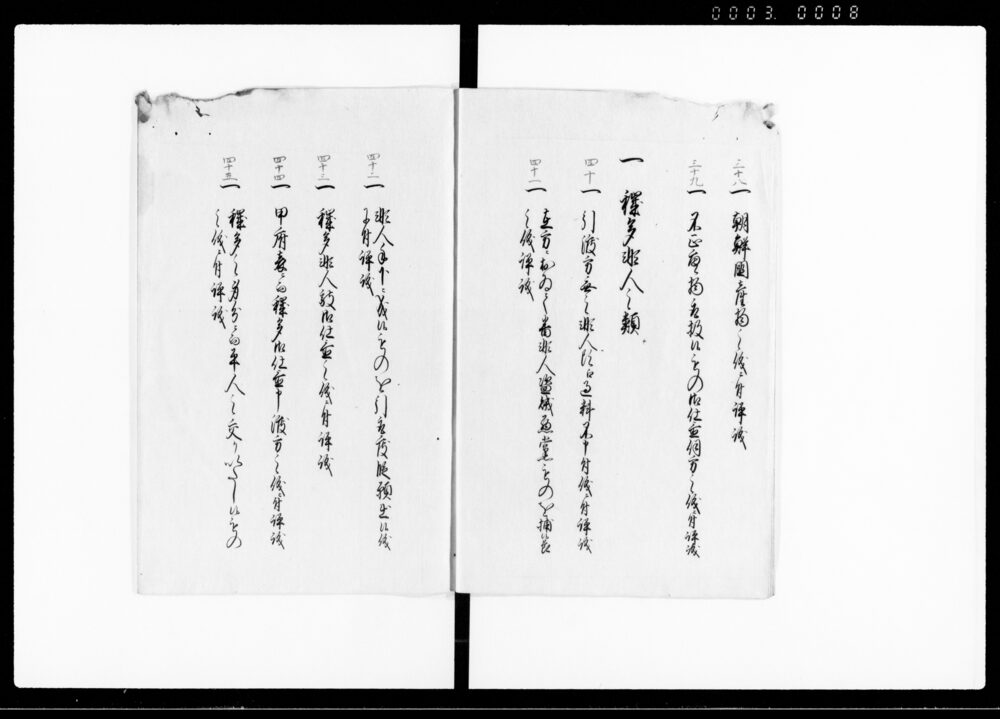 0003 0008
三十八
一 朝鮮國産物之儀ニ付評議
三十九
一 不正唐物取扱候もの御仕置伺方之儀ニ付評議
一 穢多非人之類
四十
一 引渡方無之非人江過料不申付儀ニ付評議
四十一
一 在方ニおゐて番非人盗賊悪黨ものを捕
之儀ニ付評議
四十二
一 非人手下ニ成候ものを引取度段願出候儀
ニ付評議
四十三
一 穢多非人敲御仕置之儀ニ付評議
四十四
一 甲府表ニ而穢多御仕置申渡方之儀ニ付評議
四十五
一 穢多之身分ニ而平人之交りいたし候もの
之儀ニ付評議